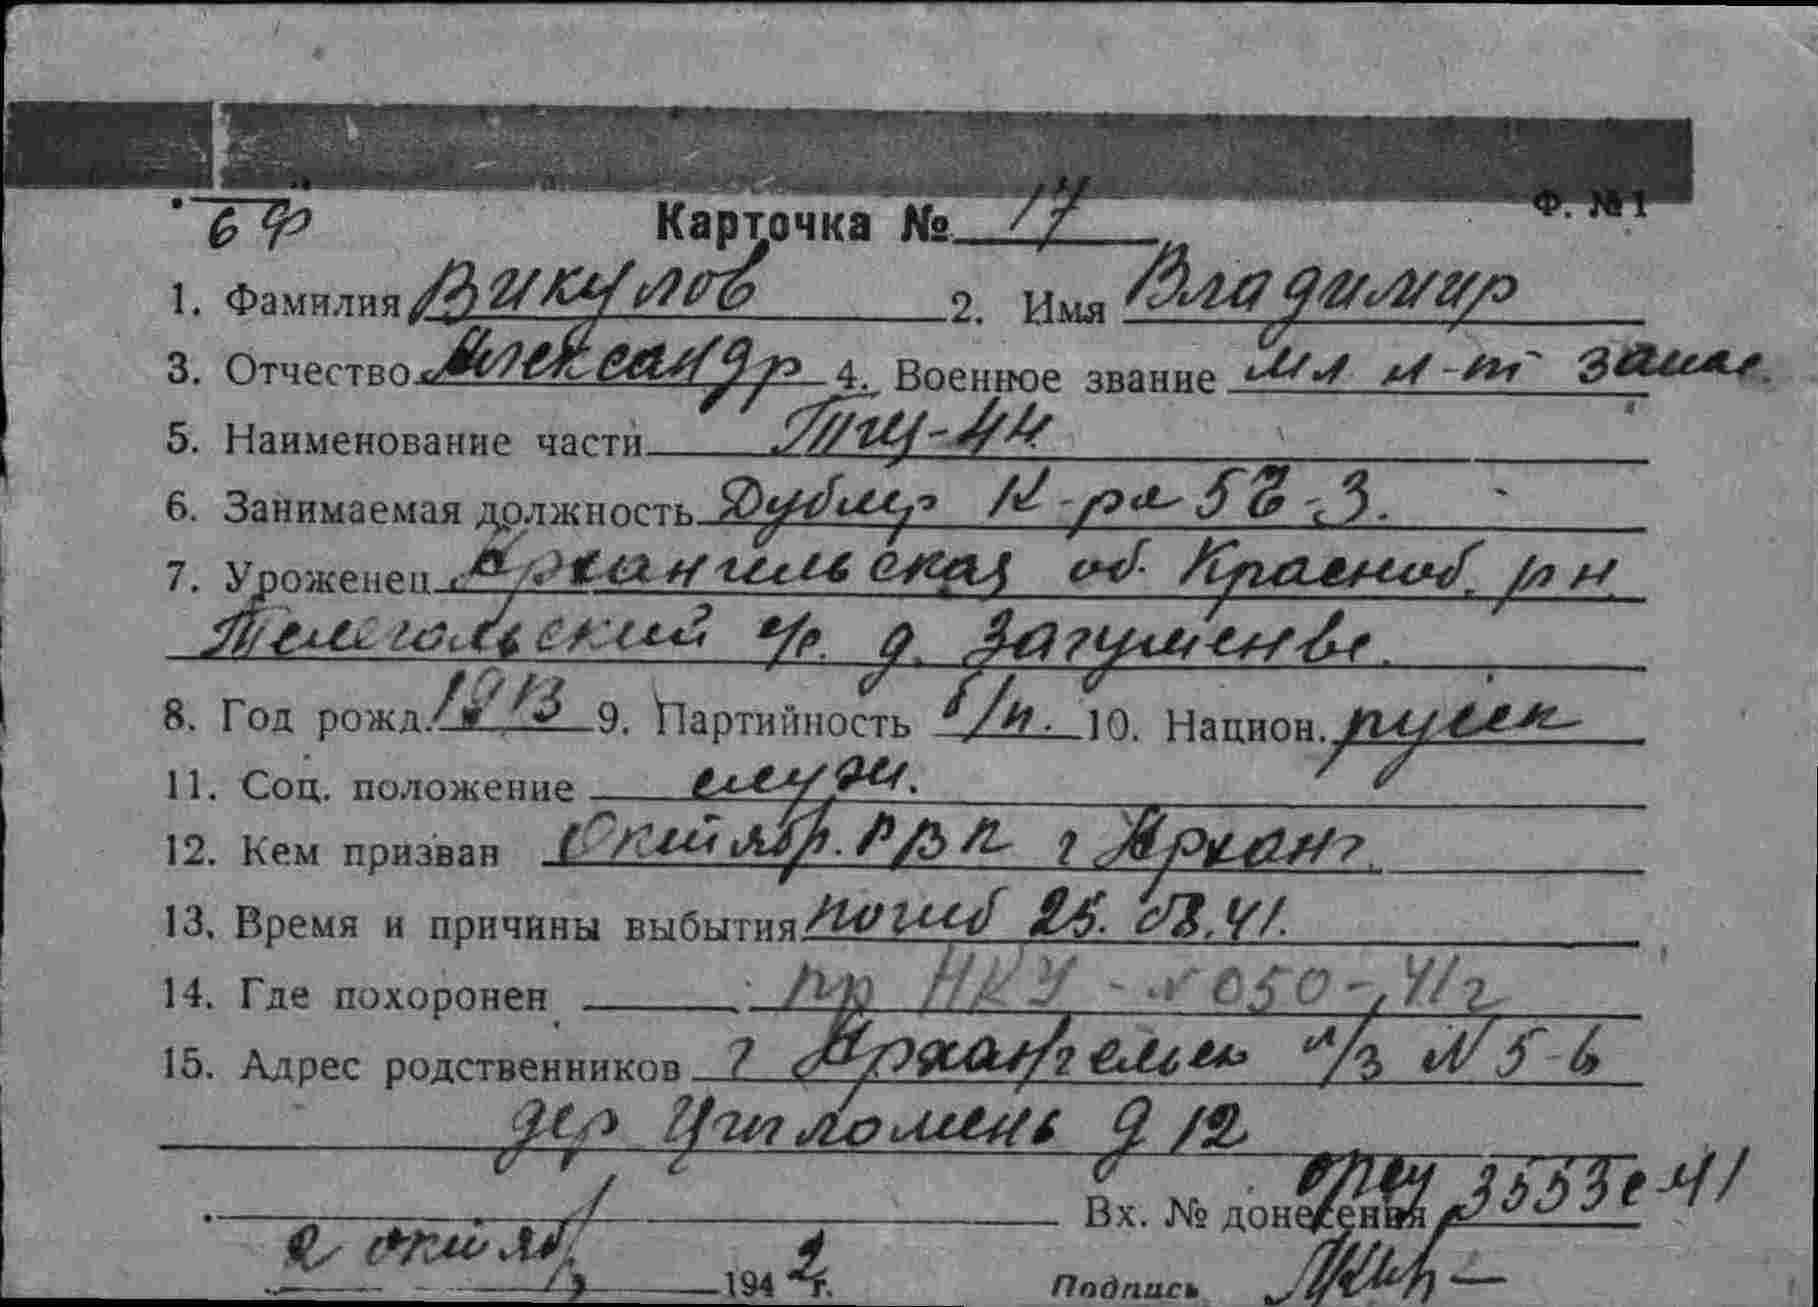 6 ф
Ф. №1
Карточка № 17
1. Фамилия Викулов 2. Имя Владимир
3. Отчество Александр 4. Военное звание мл л-т запас.
5. Наименование части Тщ-44
6. Занимаемая должность Дублер К-ра БЧ-3.
7. Уроженец Архангельская об. Красноб. р н
Телегольский с/с. д. Загуменье.
8. Год рожд. 1913 9. Партийность б/п. 10. Национ. русск
11. Соц. положение служ.
12. Кем призван Октябр. РВК г Арханг.
13. Время и причины выбытия погиб 25.08.41.
14. Где похоронен пр НКУ - № 050-41г
15. Адрес родственников г Архангельск л/з № 5-6
дер Цигломень д 12
Вх. № донесения 3553с-41
2 октяб. 1942 г. Подпись